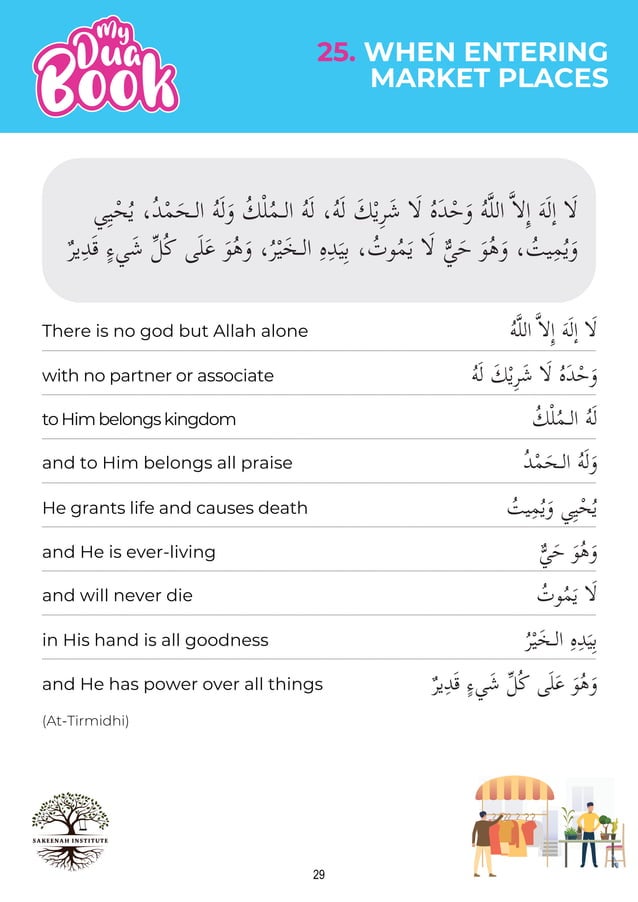 My
Dua
Book
25. WHEN ENTERING
MARKET PLACES
لَا إِلَهَ إِلاَّ اللَّهُ وَحْدَهُ لَا شَرِيْكَ لَهُ، لَهُ الـمُلْكُ وَلَهُ الـحَمْدُ، يُحْيِي
وَيُمِيتُ، وَهُوَ حَيٌّ لَا يَمُوتُ، بِيَدِهِ الـخَيْرُ، وَهُوَ عَلَى كُلِّ شَيءٍ قَدِيرٌ
There is no god but Allah alone لَا إِلَهَ إِلاَّ اللَّهُ
with no partner or associate وَحْدَهُ لَا شَرِيْكَ لَهُ
to Him belongs kingdom لَهُ الـمُلْكُ
and to Him belongs all praise وَلَهُ الـحَمْدُ
He grants life and causes death يُحْيِي وَيُمِيتُ
and He is ever-living وَهُوَ حَيٌّ
and will never die لَا يَمُوتُ
in His hand is all goodness بِيَدِهِ الـخَيْرُ
and He has power over all things وَهُوَ عَلَى كُلِّ شَيءٍ قَدِيرٌ
(At-Tirmidhi)
SAKEENAH INSTITUTE
29